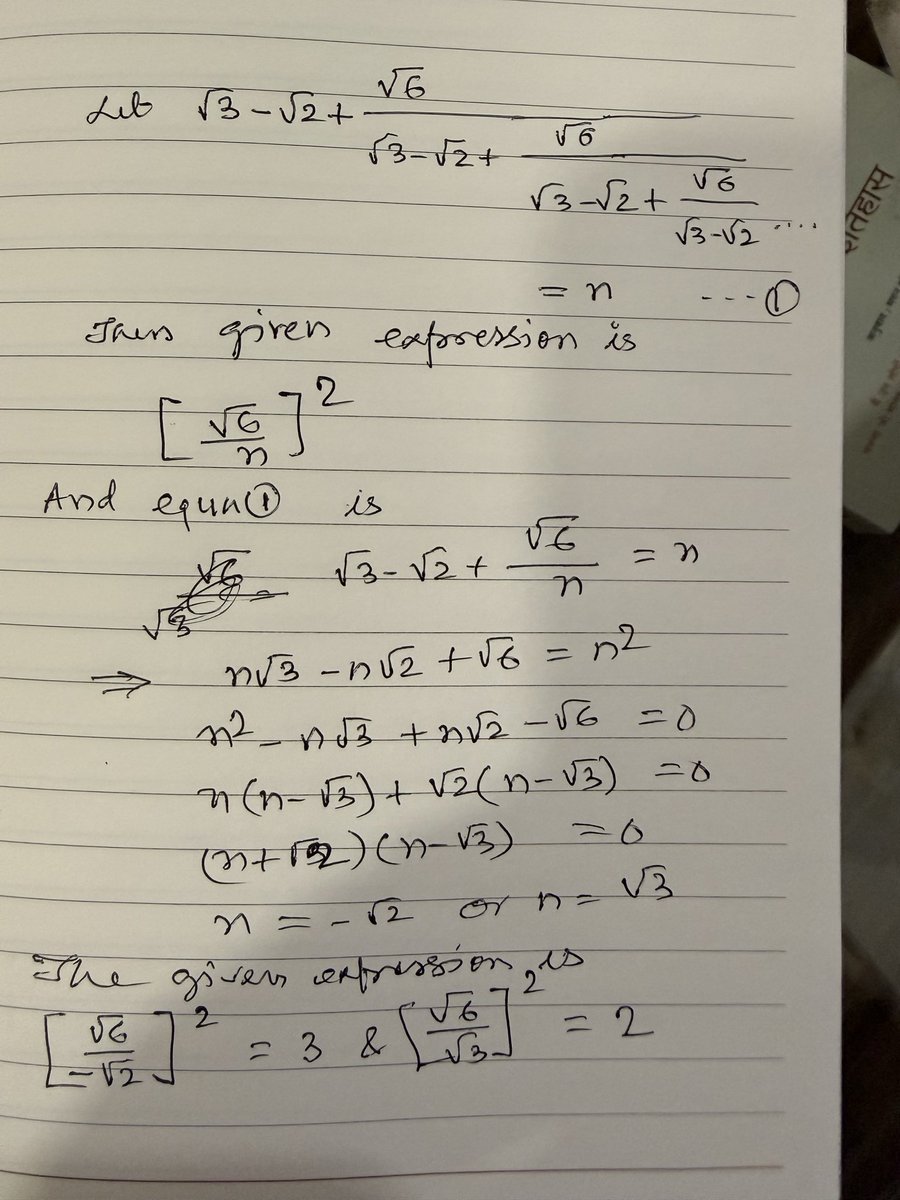 Let √3-√2+ √6/(√3-√2+ √6/(√3-√2+ √6/(√3-√2 ....
= n ---①
Then given expression is
[√6/n]²
And equn① is
√3-√2+ √6/n = n
⇒ n√3-n√2+√6 = n²
n²-n√3+n√2-√6 = 0
n(n-√3)+√2(n-√3) = 0
(n+√2)(n-√3) = 0
n = -√2 or n = √3
The given expression is
[√6/-√2]² = 3 & [√6/√3]² = 2
इतिहास